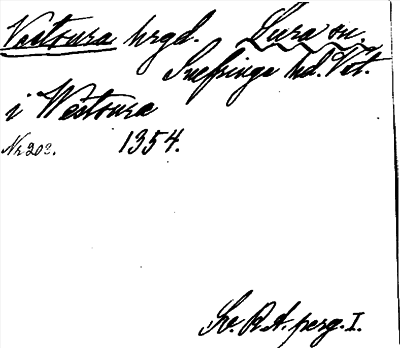 Västsura hrgd. Sura sn.
Snefringe hd. Vst.
i Westsura
Nr 202. 1354.
Sv. R. A. perg. I.